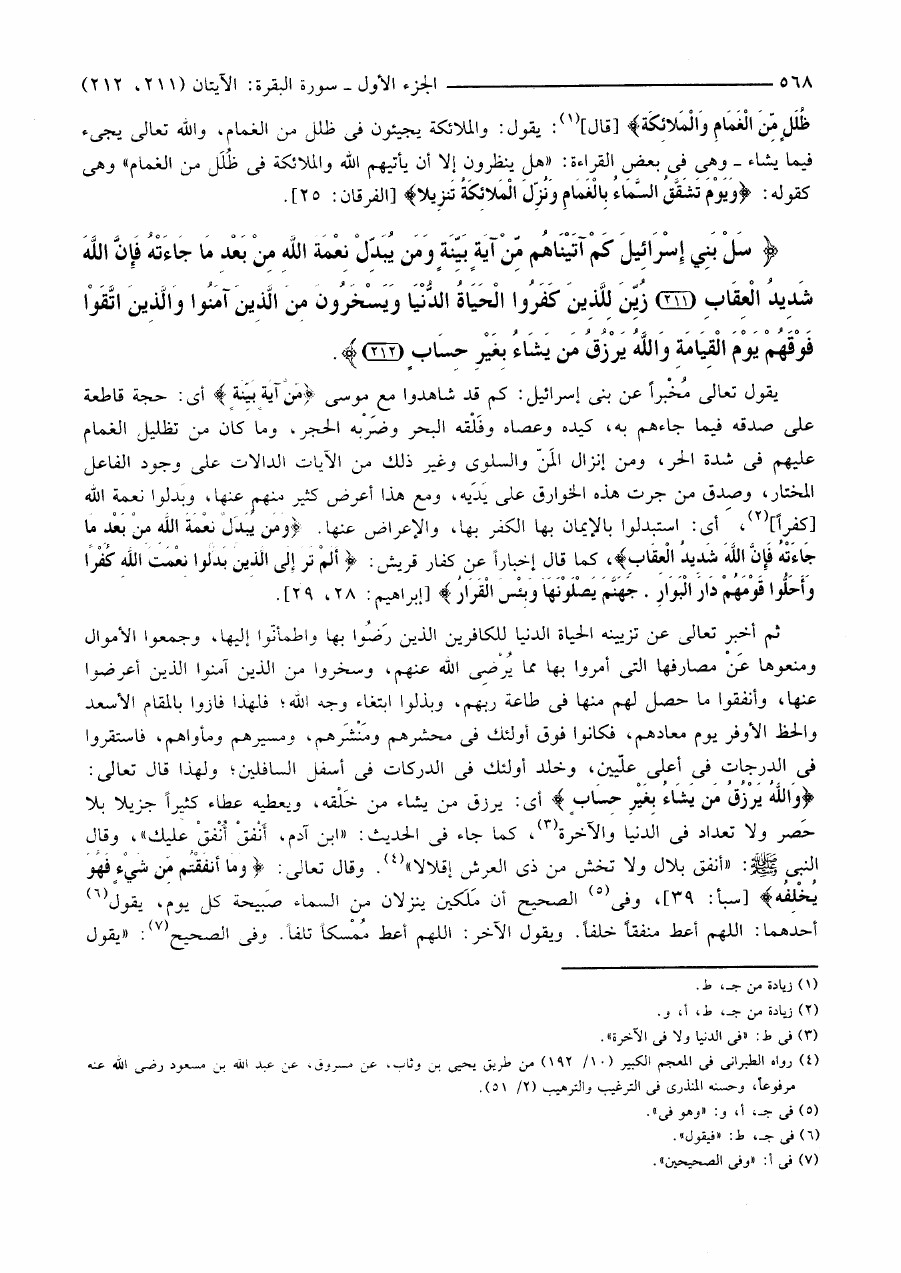 ٥٦٨ ــــــــ الجزء الأول ـ سورة البقرة: الآيتان (٢١١، ٢١٢)
ظُلَلٍ مِّنَ الْغَمَامِ وَالْمَلائِكَة﴾ [قال](١): يقول: والملائكة يجيئون فى ظلل من الغمام، والله تعالى يجىء
فيما يشاء ـ وهى فى بعض القراءة: «هل ينظرون إلا أن يأتيهم الله والملائكة فى ظُلَل من الغمام» وهى
كقوله: ﴿وَيَوْمَ تَشَقَّقُ السَّمَاءُ بِالْغَمَامِ وَنُزِّلَ الْمَلائِكَةُ تَنزِيلا﴾ [الفرقان: ٢٥].
﴿ سَلْ بَنِي إِسْرَائِيلَ كَمْ آتَيْنَاهُم مِّنْ آيَةٍ بَيِّنَةٍ وَمَن يُبَدِّلْ نِعْمَةَ اللَّهِ مِنْ بَعْدِ مَا جَاءَتْهُ فَإِنَّ اللَّهَ
شَدِيدُ الْعِقَابِ (٢١١) زُيِّنَ لِلَّذِينَ كَفَرُوا الْحَيَاةُ الدُّنْيَا وَيَسْخَرُونَ مِنَ الَّذِينَ آمَنُوا وَالَّذِينَ اتَّقَوْا
فَوْقَهُمْ يَوْمَ الْقِيَامَةِ وَاللَّهُ يَرْزُقُ مَن يَشَاءُ بِغَيْرِ حِسَابٍ (٢١٢)﴾.
يقول تعالى مُخْبراً عن بنى إسرائيل: كم قد شاهدوا مع موسى ﴿مِّنْ آيَةٍ بَيِّنَةٍ ﴾ أى: حجة قاطعة
على صدقه فيما جاءهم به، كيده وعصاه وفَلْقه البحر وضَرْبه الحجر، وما كان من تظليل الغمام
عليهم فى شدة الحر، ومن إنزال المَنّ والسلوى وغير ذلك من الآيات الدالات على وجود الفاعل
المختار، وصدق من جرت هذه الخوارق على يَدَيه، ومع هذا أعرض كثير منهم عنها، وبَدلوا نعمة الله
[كفراً](٢)، أى: استبدلوا بالإيمان بها الكفر بها، والإعراض عنها. ﴿وَمَن يُبَدِّلْ نِعْمَةَ اللَّهِ مِنْ بَعْدِ مَا
جَاءَتْهُ فَإِنَّ اللَّهَ شَدِيدُ الْعِقَابِ﴾، كما قال إخباراً عن كفار قريش: ﴿ أَلَمْ تَرَ إِلَى الَّذِينَ بَدَّلُوا نِعْمَتَ اللَّهِ كُفْرًا
وَأَحَلُّوا قَوْمَهُمْ دَارَ الْبَوَارِ . جَهَنَّمَ يَصْلَوْنَهَا وَبِئْسَ الْقَرَارُ ﴾ [إبراهيم: ٢٨، ٢٩].
ثم أخبر تعالى عن تزيينه الحياة الدنيا للكافرين الذين رَضُوا بها واطمأنّوا إليها، وجمعوا الأموال
ومنعوها عَنْ مصارفها التى أمروا بها مما يُرْضِى الله عنهم، وسخروا من الذين آمنوا الذين أعرضوا
عنها، وأنفقوا ما حصل لهم منها فى طاعة ربهم، وبذلوا ابتغاء وجه الله؛ فلهذا فازوا بالمقام الأسعد
والحظ الأوفر يوم معادهم، فكانوا فوق أولئك فى محشرهم ومَنْشَرهم، ومسيرهم ومأواهم، فاستقروا
فى الدرجات فى أعلى علّيين، وخلد أولئك فى الدركات فى أسفل السافلين؛ ولهذا قال تعالى:
﴿وَاللَّهُ يَرْزُقُ مَن يَشَاءُ بِغَيْرِ حِسَابٍ ﴾ أى: يرزق من يشاء من خَلْقه، ويعطيه عطاء كثيراً جزيلا بلا
حَصر ولا تعداد فى الدنيا والآخرة(٣)، كما جاء فى الحديث: «ابن آدم، أَنْفقْ أُنْفقْ عليك»، وقال
النبى ﷺ: «أنفق بلال ولا تخش من ذى العرش إقلالا»(٤). وقال تعالى: ﴿ وَمَا أَنفَقْتُم مِّن شَيْءٍ فَهُوَ
يُخْلِفُه﴾ [سبأ: ٣٩]، وفى(٥) الصحيح أن مَلَكين ينزلان من السماء صَبيحة كل يوم، يقول(٦)
أحدهما: اللهم أعط منفقاً خلفاً. ويقول الآخر: اللهم أعط مُمْسكاً تلفاً. وفى الصحيح(٧): «يقول
(١) زيادة من جـ، ط.
(٢) زيادة من جـ، ط، أ، و.
(٣) فى ط: «فى الدنيا ولا فى الآخرة».
(٤) رواه الطبرانى فى المعجم الكبير (١٠/ ١٩٢) من طريق يحيى بن وثاب، عن مسروق، عن عبد الله بن مسعود رضى الله عنه
مرفوعاً، وحسنه المنذرى فى الترغيب والترهيب (٢/ ٥١).
(٥) فى جـ، أ، و: «وهو فى».
(٦) فى جـ، ط: «فيقول».
(٧) فى أ: «وفى الصحيحين».